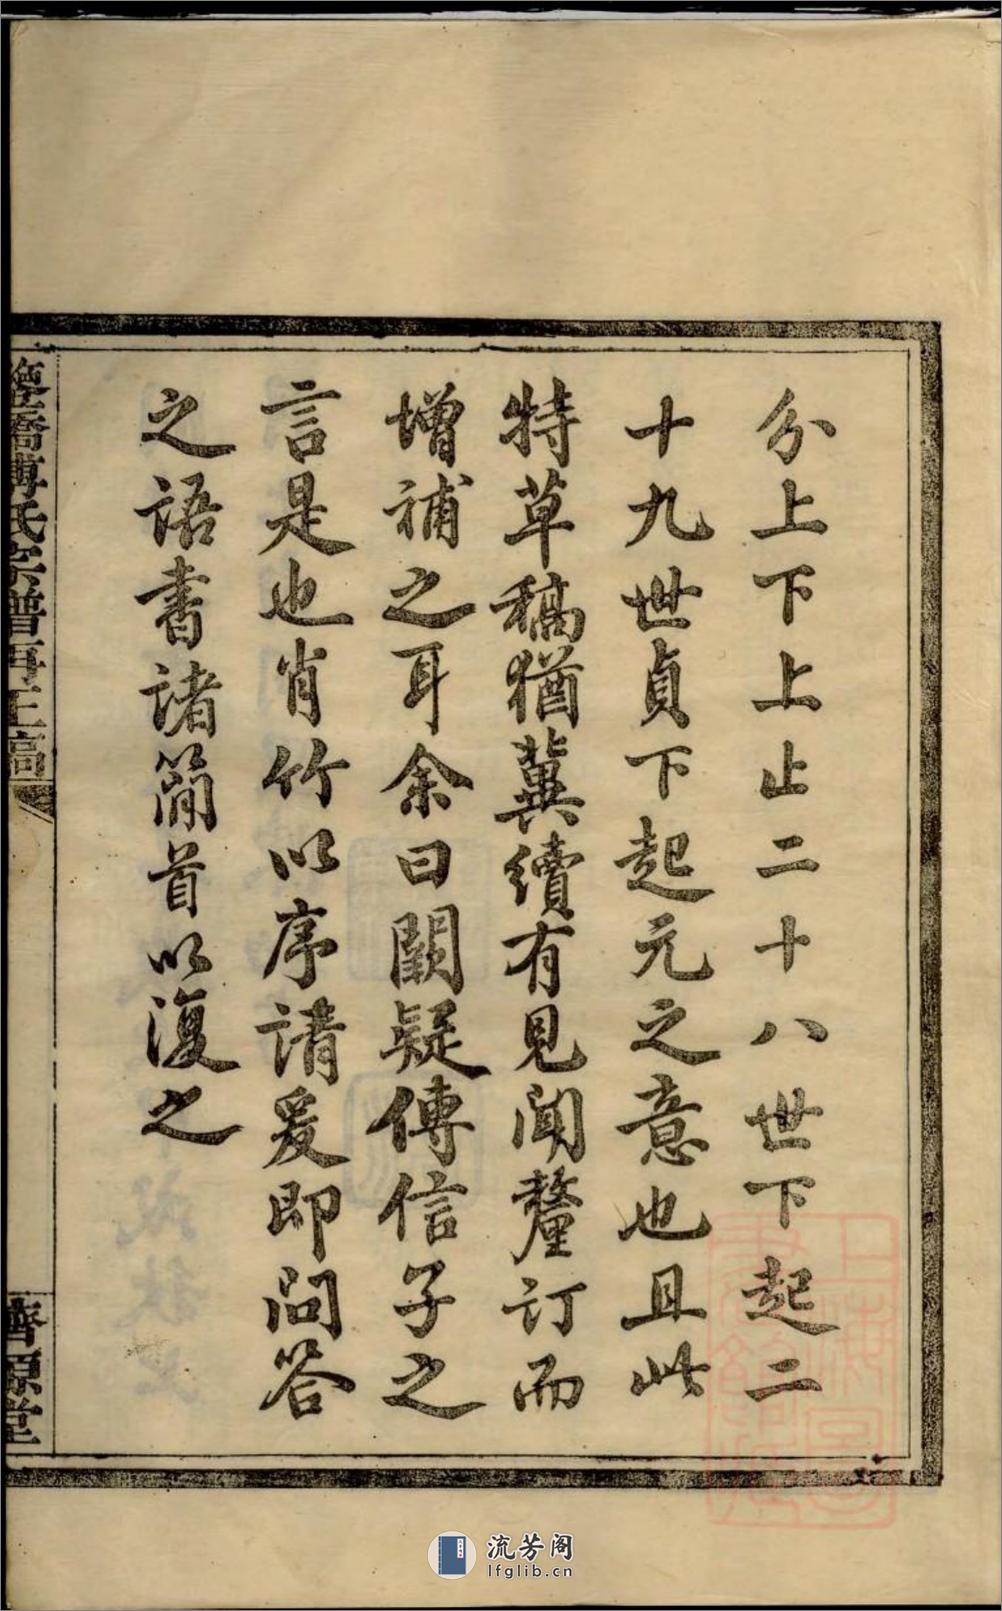 分上下上止二十八世下起二
十九世貞下起元之意也且此
特草稿猶冀續有見聞釐訂而
增補之耳余曰闕疑傳信子之
言是也肖竹以序請爰即問答
之語書諸簡首以復之
傅氏宗譜再正稿
濟源堂
流芳阁
lfglib.cn